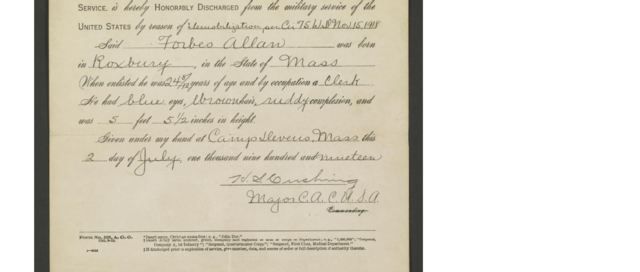 SERVICE, is hereby HONORABLY DISCHARGED from the military service of the
UNITED STATES by reason of Demobilization, per Cir. 75 W.D. Nov. 15, 1918
Said Forbes Allan was born
in Roxbury, in the State of Mass
When enlisted he was 24 years of age and by occupation a Clerk
He had blue eyes, brown hair, ruddy complexion, and
was 5 feet 5 1/2 inches in height.
Given under my hand at Camp Devens, Mass this
2 day of July, one thousand nine hundred and nineteen
Cushing
Major C.A.C. U.S.A
Commanding.
Form No. 525, A. G. O.